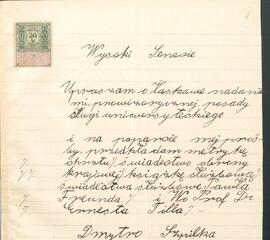 1
Wysoki Senacie
Upraszam o łaskawe nadanie
mi prowizorycznej posady
sługi uniwersyteckiego
i na poparcie mej proś-
by, przedkładam metrykę
chrztu /, świadectwo obrony
krajowej książkę służbową /
świadectwa służbowe Pawła
Freunda / i Wo Prof Dr
Ernesta Tilla /.
Dmytro Szpilka